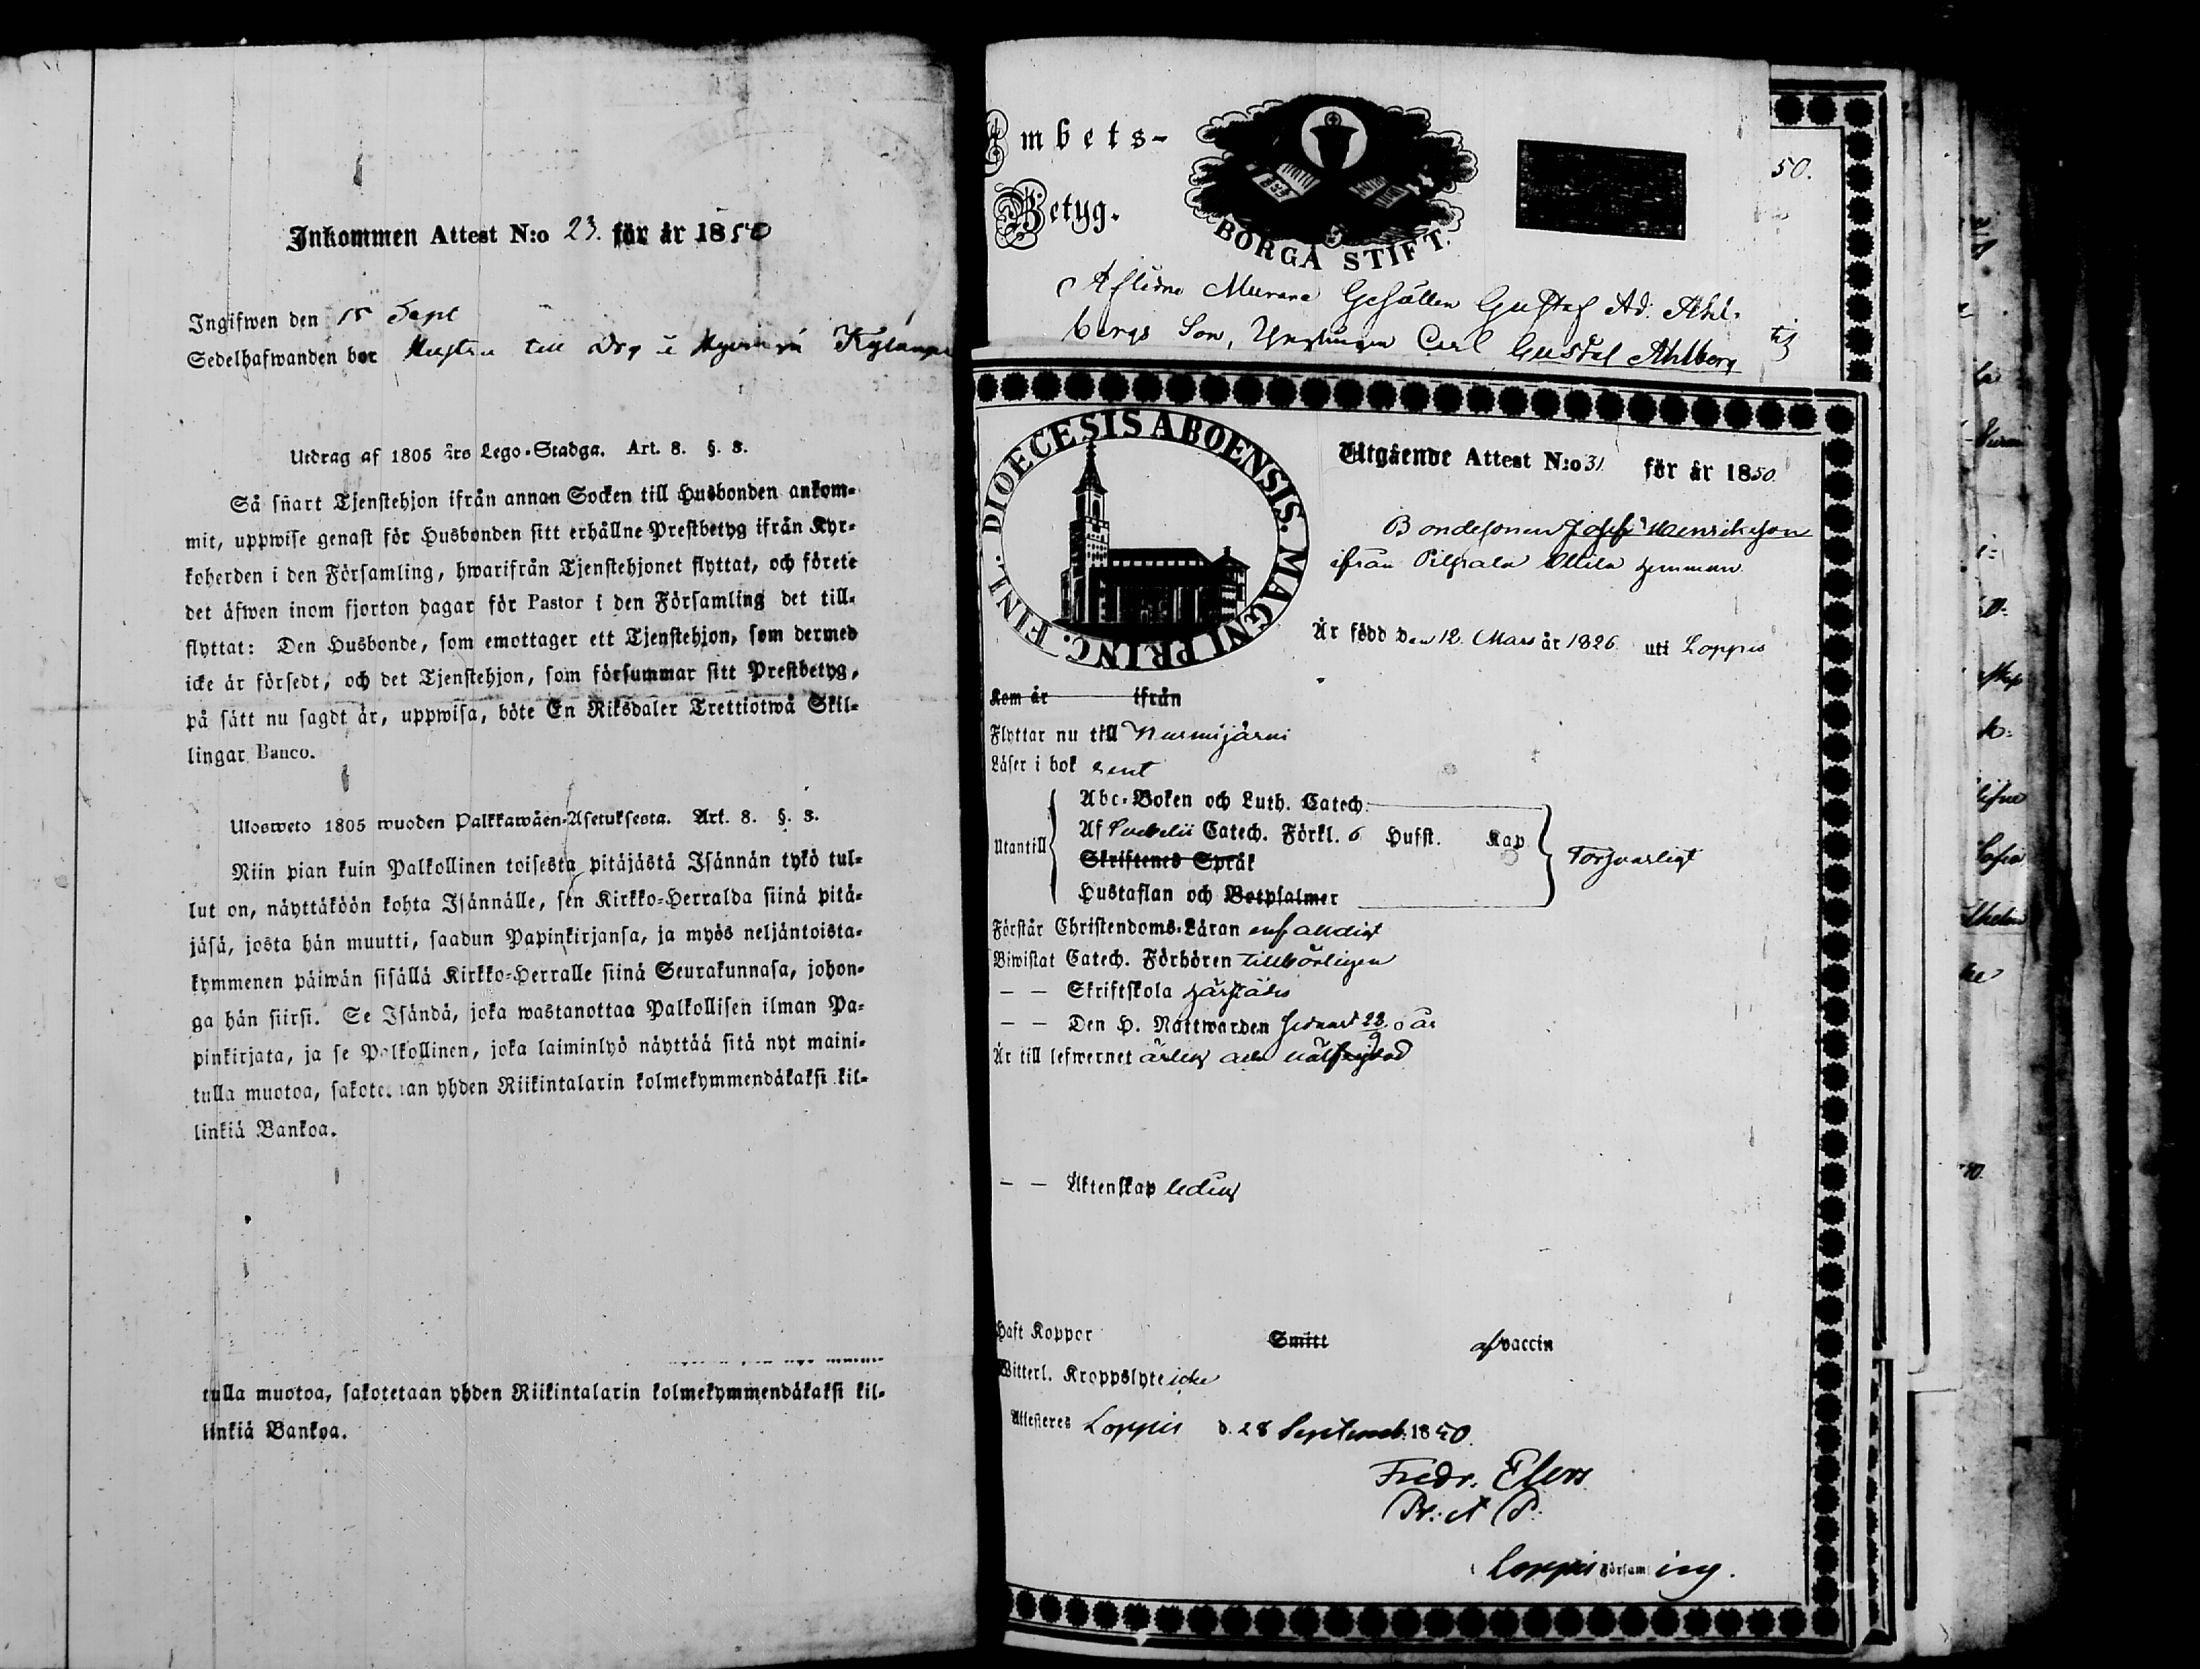 Inkommen Attest N:o 23. för år 1850
Ingifwen den 15 Sept
Sedelhafwanden bor till Drg i
Utdrag af 1805 års Lego-Stadga. Art. 8. §. 3.
Så snart Tjenstehjon ifrån annan Socken till Husbonden ankom-
mit, uppwise genast för Husbonden sitt erhållne Prestbetyg ifrån Kyr-
koherden i den Församling, hwarifrån Tjenstehjonet flyttat, och förete
det äfwen inom fjorton dagar för Pastor i den Församling det till-
flyttat: Den Husbonde, som emottager ett Tjenstehjon, som dermed
icke är försedt, och det Tjenstehjon, som försummar sitt Prestbetyg,
på sätt nu sagdt är, uppwisa, böte En Riksdaler Trettiotwå Skil-
lingar Banco.
Ulosweto 1805 wuoden Palkkawäen-Asetuksesta. Art. 8. §. 3.
Niin pian kuin Palkollinen toisesta pitäjästä Isännän tykö tul-
lut on, näyttäköön kohta Isännälle, sen Kirkko-Herralda siinä pitä-
jäsä, josta hän muutti, saadun Papinkirjansa, ja myös neljäntoista-
kymmenen päiwän sisällä Kirkko-Herralle siinä Seurakunnasa, johon-
ga hän siirsi. Se Isändä, joka wastanottaa Palkollisen ilman Pa-
pinkirjata, ja se Palkollinen, joka laiminlyö näyttää sitä nyt maini-
tulla muotoa, sakotetaan yhden Riikintalarin kolmekymmendäkaksi kil-
linkiä Bankoa.
tulla muotoa, sakotetaan yhden Riikintalarin kolmekymmendäkaksi kil-
linkiä Bankoa.
Ambets-
Betyg.
BORGÅ STIFT.
Aflidne Murare Gesällen Gustaf Ad. Ahl-
bergs Son, Ynglingen Carl Gustaf Ahlberg
50.
DIOECESIS ABOENSIS. MAGNI PRINC. FINL.
Utgående Attest N:o 31 för år 1850.
Bondesonen Josef Henriksson
ifrån Pilpala Ollila hemman.
Är född den 12. Mars år 1826 uti Loppis
Kom år ifrån
Flyttar nu till Nurmijärvi
Läser i bok rent
Utantill
Abc-Boken och Luth. Catech.
Af Svebelii Catech. Förkl. 6 Hufst. Kap
Skriftenes Språk
Hustaflan och Botpsalmer
Försvarligt
Förstår Christendoms-Läran enfaldigt
Biwistat Catech. Förhören tillbörligen
— — Skriftskola härstädes
— — Den H. Nattwarden senast 22/9 d år
Är till lefwernet ärlig och välfrejdad
— — Äktenskap ledig
Haft Koppor Smitt af vaccin
Witterl. Kroppslyte icke
Attesteres Loppis d. 28 Septemb. 1850.
Fredr. Elers
Pr. et P.
i Loppis Församling.